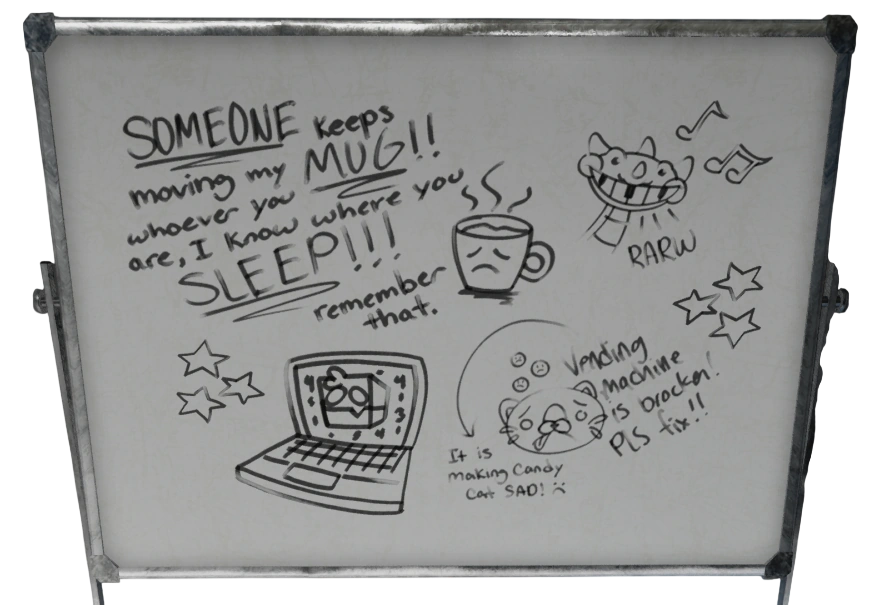 SOMEONE keeps
moving my MUG!!
whoever you
are, I know where you
SLEEP!!!
remember
that.
RARW
Vending
machine
is brocken!
PLS fix!!
It is
making Candy
Cat SAD! :(